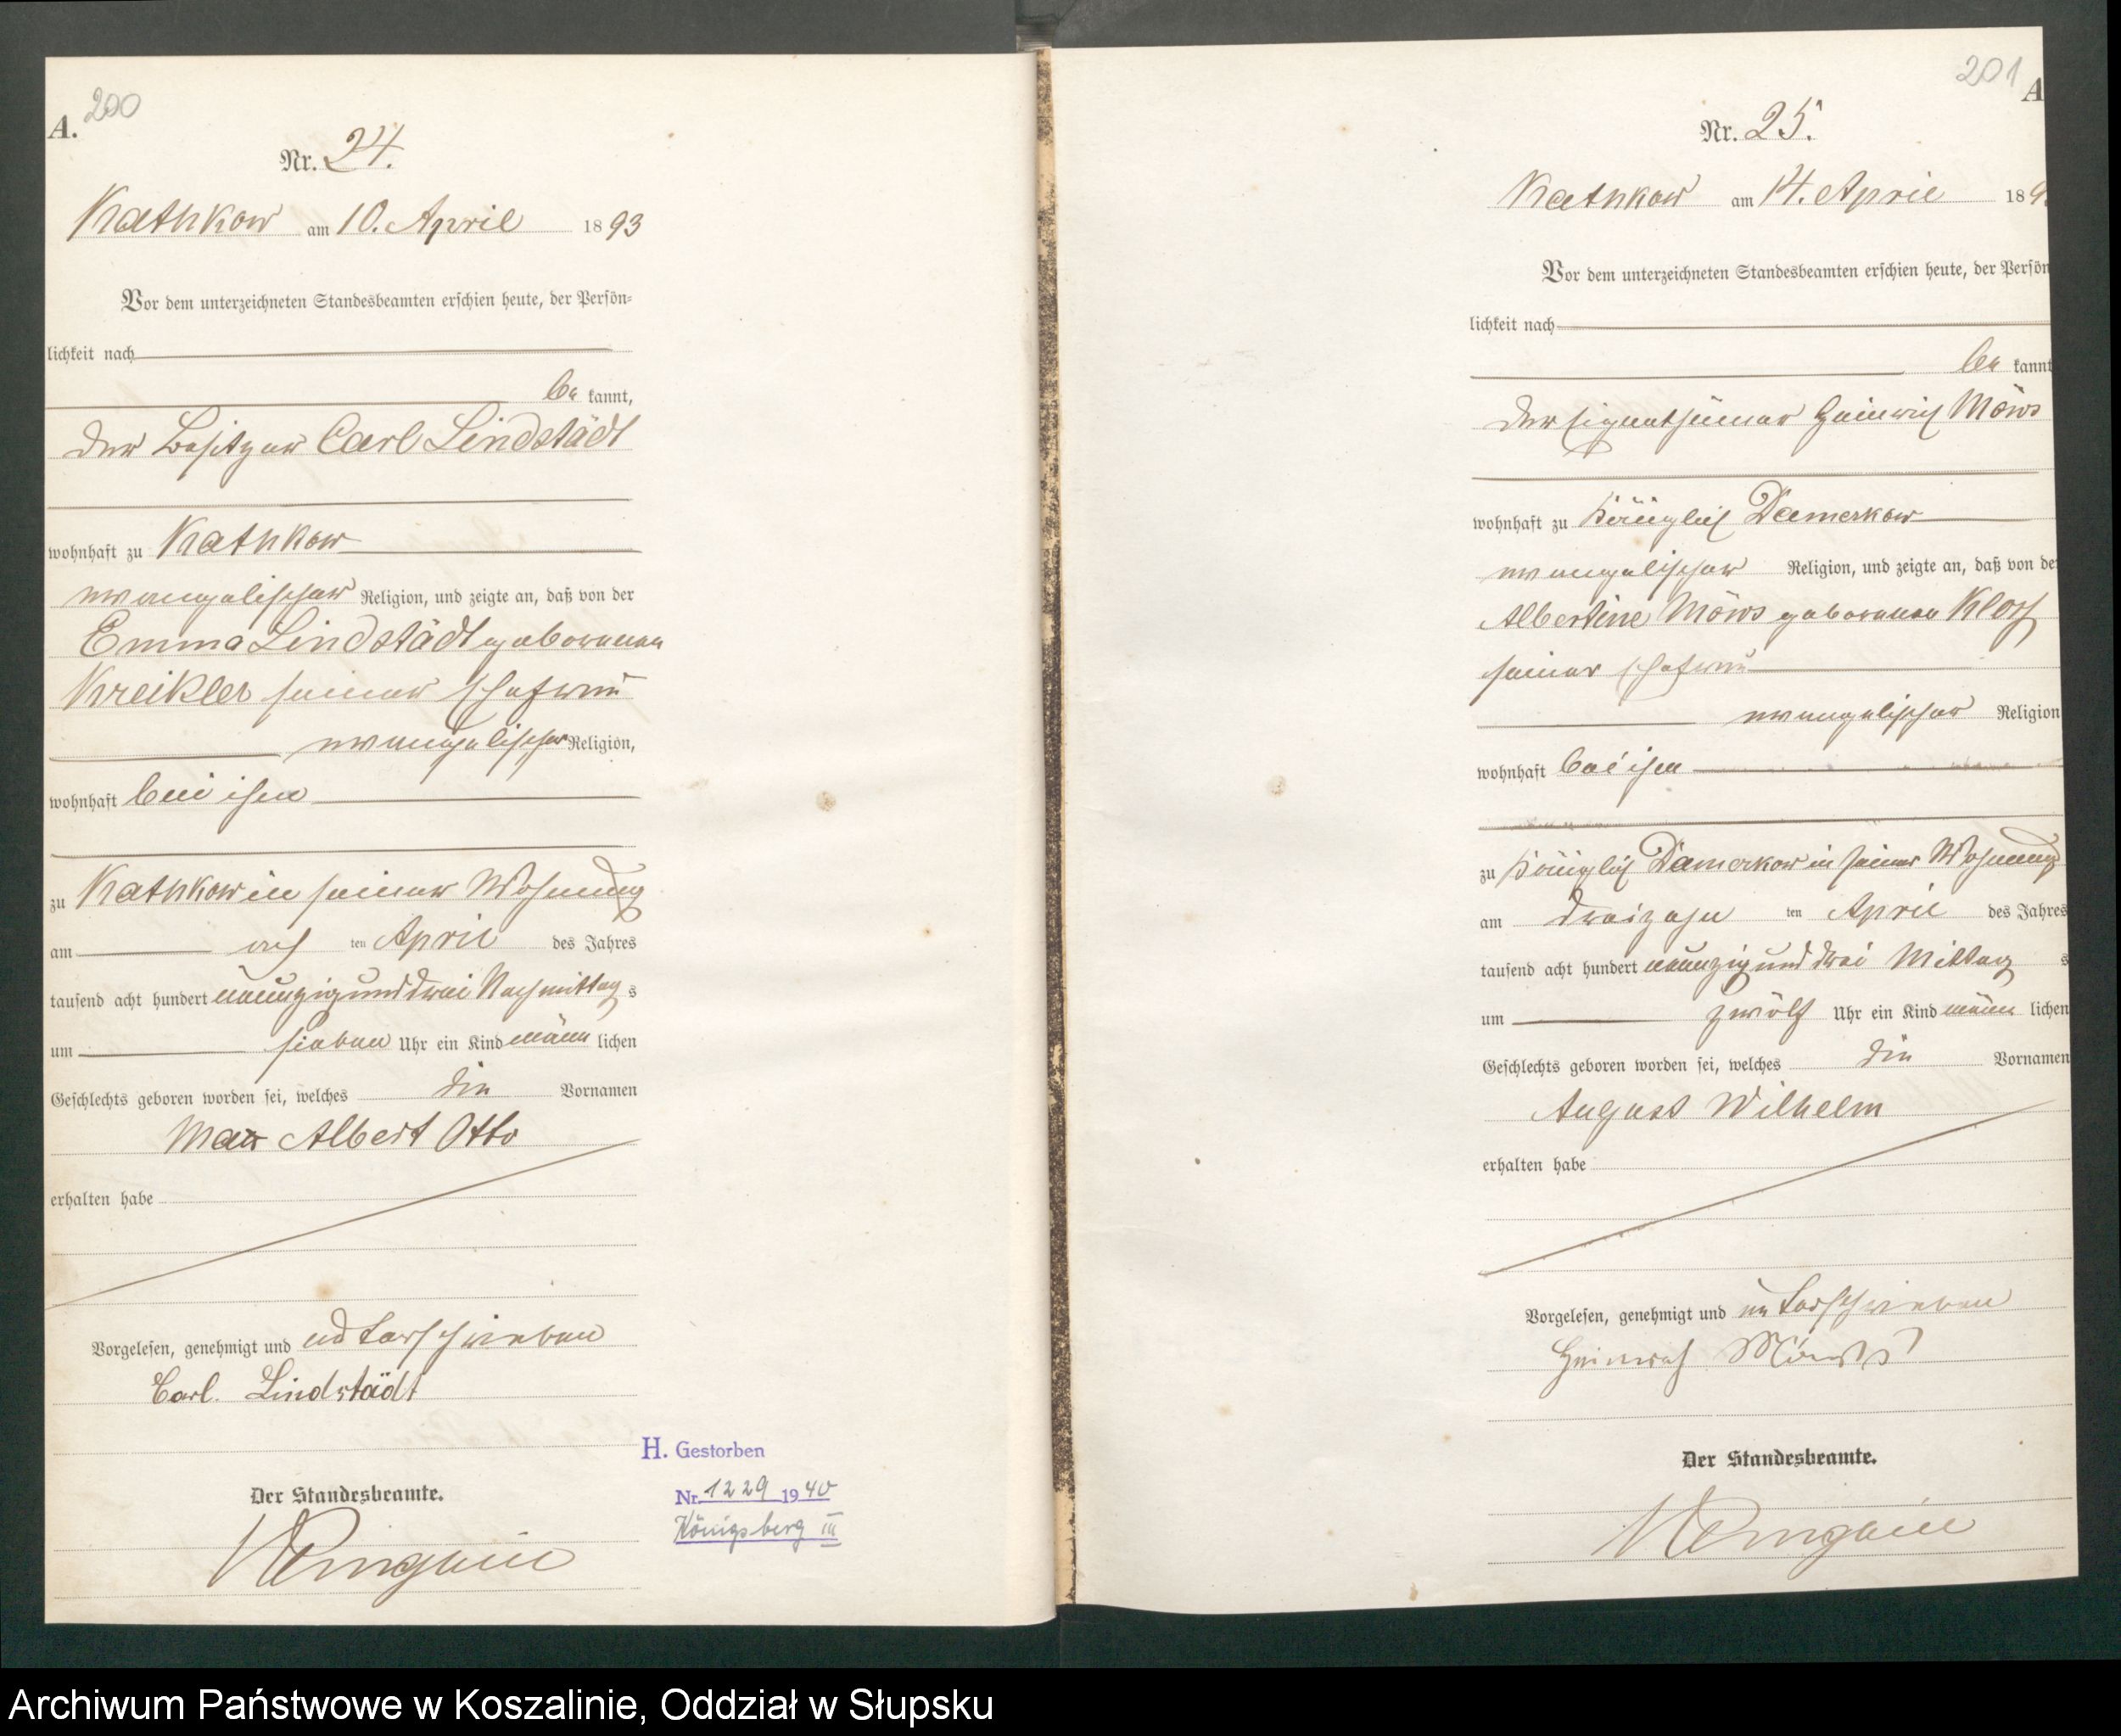 200
A.
Nr. 24.
Kathkow am 10. April 1893
Vor dem unterzeichneten Standesbeamten erschien heute, der Persön-
lichkeit nach
be kannt,
der Besitzer Carl Lindstädt
wohnhaft zu Kathkow
evangelischer Religion, und zeigte an, daß von der
Emma Lindstädt geborenen
Kreikler seiner Ehefrau
evangelischer Religion,
wohnhaft bei ihm
zu Kathkow in seiner Wohnung
am acht ten April des Jahres
tausend acht hundert neunzig und drei Nachmittag s
um sieben Uhr ein Kind männ lichen
Geschlechts geboren worden sei, welches die Vornamen
Max Albert Otto
erhalten habe
Vorgelesen, genehmigt und unterschrieben
Carl. Lindstädt
Der Standesbeamte.
H. Gestorben
Nr. 1229 1940
Königsberg III
201
A
Nr. 25.
Kathkow am 14. April 189
Vor dem unterzeichneten Standesbeamten erschien heute, der Persön
lichkeit nach
be kannt
der Eigenthümer Heinrich Möws
wohnhaft zu Königlich Damerkow
evangelischer Religion, und zeigte an, daß von de
Albertine Möws geborenen
seiner Ehefrau
evangelischer Religion
wohnhaft bei ihm
zu Königlich Damerkow in seiner Wohnung
am dreizehn ten April des Jahres
tausend acht hundert neunzig und drei Mittag s
um zwölf Uhr ein Kind männ lichen
Geschlechts geboren worden sei, welches die Vornamen
August Wilhelm
erhalten habe
Vorgelesen, genehmigt und unterschrieben
Heinrich
Der Standesbeamte.
Archiwum Państwowe w Koszalinie, Oddział w Słupsku